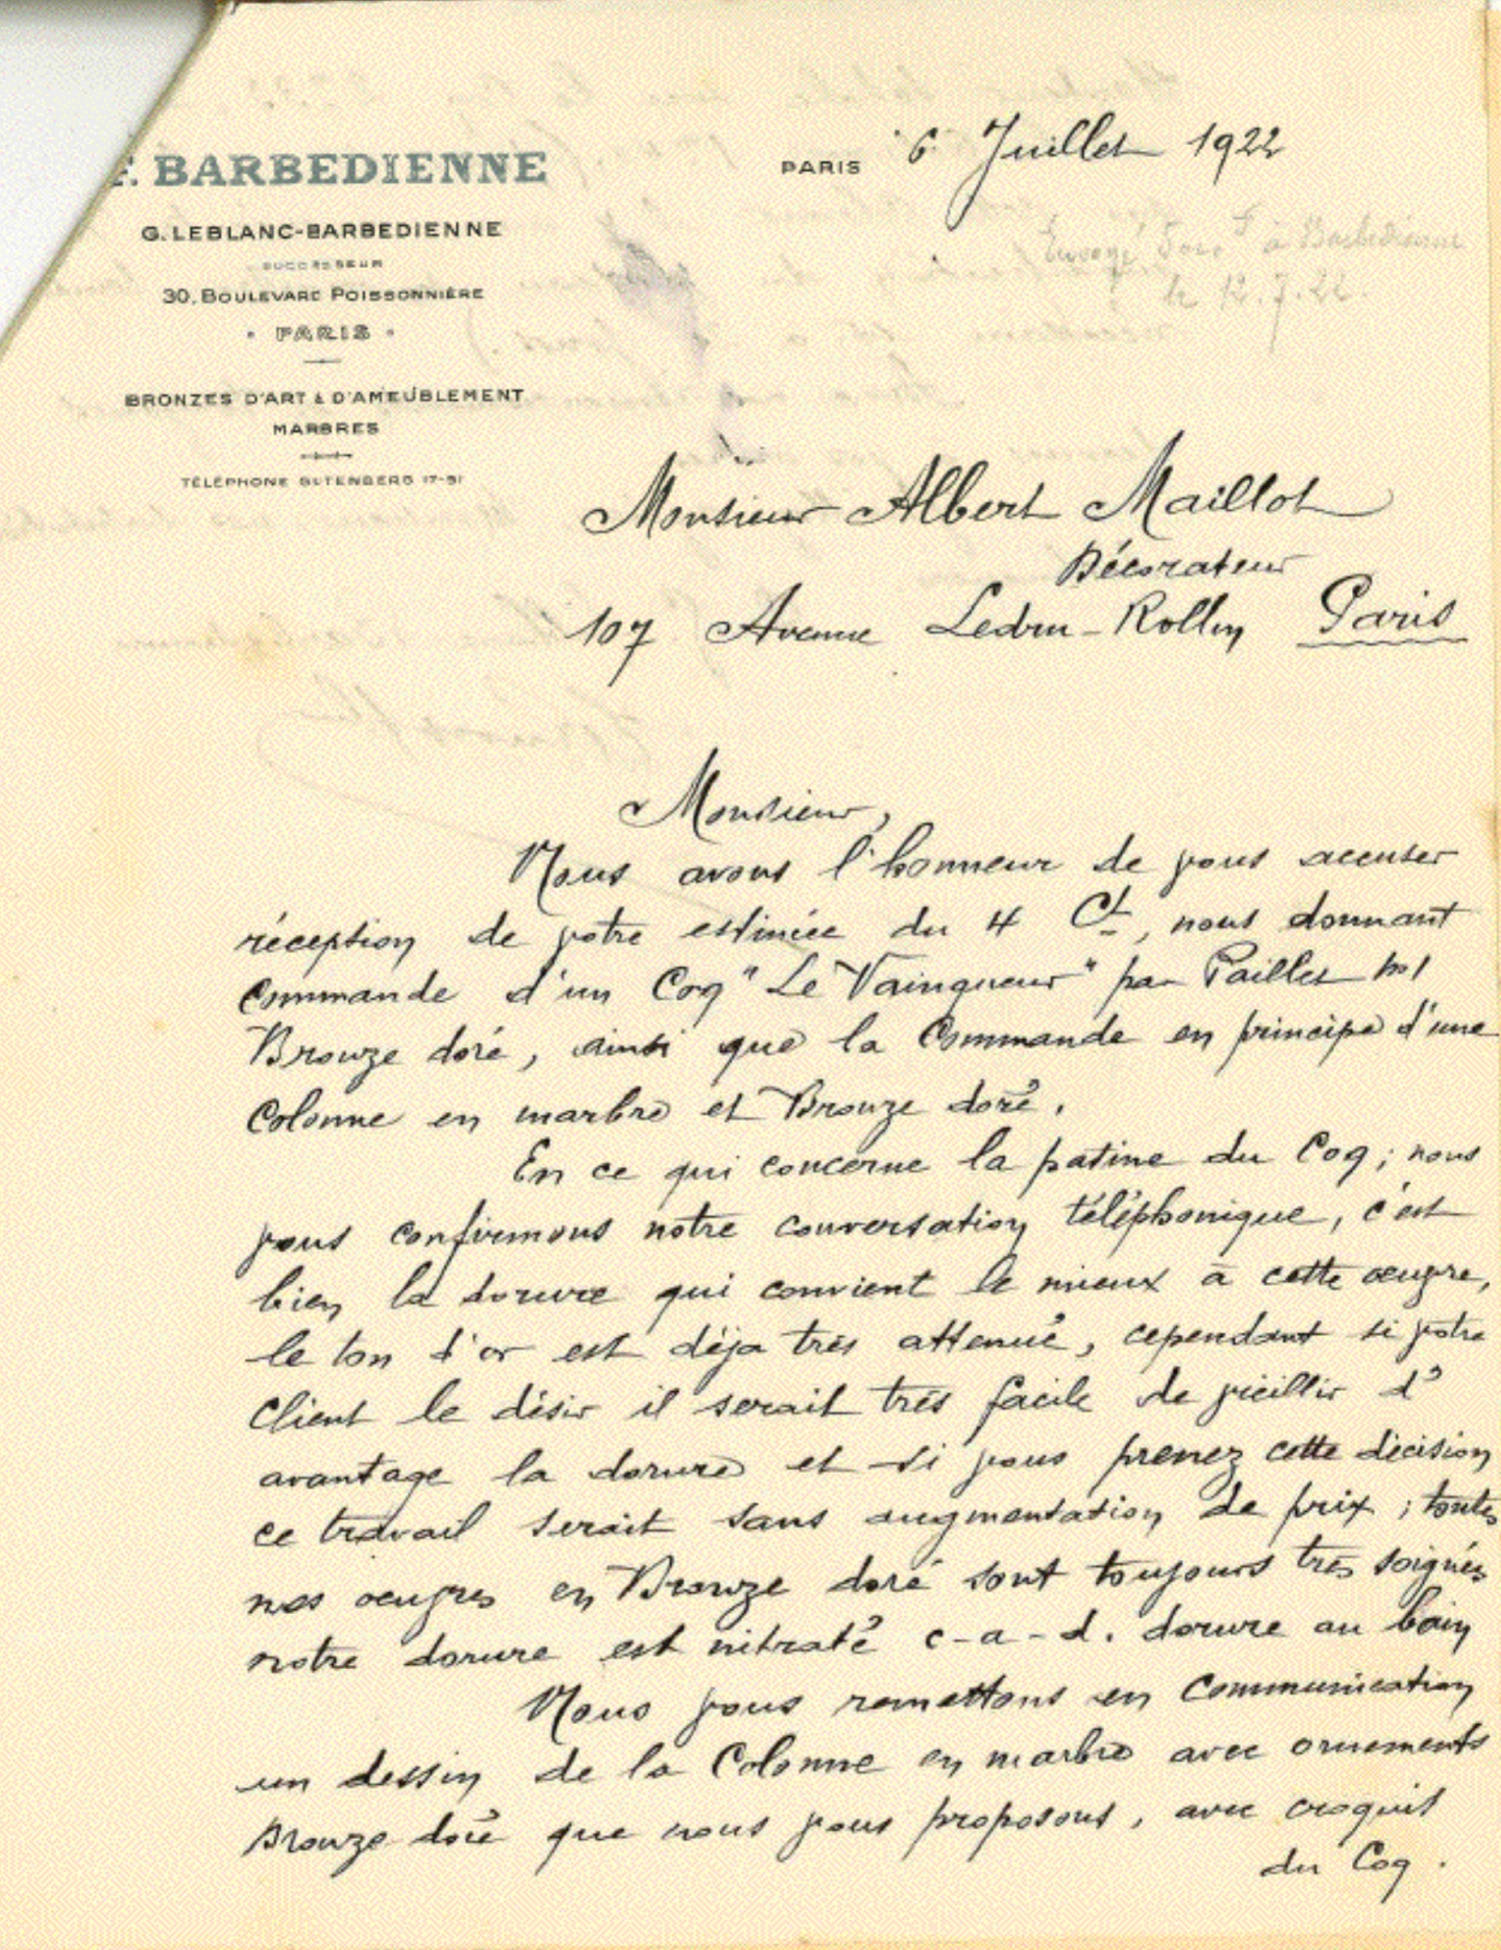 F. BARBEDIENNE
G. LEBLANC-BARBEDIENNE
SUCCESSEUR
30, BOULEVARD POISSONNIÈRE
• PARIS •
BRONZES D'ART & D'AMEUBLEMENT
MARBRES
TÉLÉPHONE GUTENBERG 17-91
PARIS 6 Juillet 1922
Envoyé à Barbedienne
le 12.7.22.
Monsieur Albert Maillot
Décorateur
107 Avenue Ledru-Rollin Paris
Monsieur,
Nous avons l'honneur de vous accuser
réception de votre estimée du 4 Ct, nous donnant
Commande d'un Coq "Le Vainqueur" par Paillet
Bronze doré, ainsi que la Commande en principe d'une
Colonne en marbre et Bronze doré.
En ce qui concerne la patine du Coq; nous
vous confirmons notre conversation téléphonique, c'est
bien la dorure qui convient le mieux à cette œuvre,
le ton d'or est déja très attenué, cependant si votre
Client le désir il serait très facile de vieillir d'
avantage la dorure et si vous prenez cette décision
ce travail serait sans augmentation de prix; toutes
nos œuvres en Bronze doré sont toujours très soignés
notre dorure est nitraté c-a-d. dorure au bain
Nous vous remettons en Communication
un dessin de la Colonne en marbre avec ornements
Bronze doré que nous vous proposons, avec croquis
du Coq.